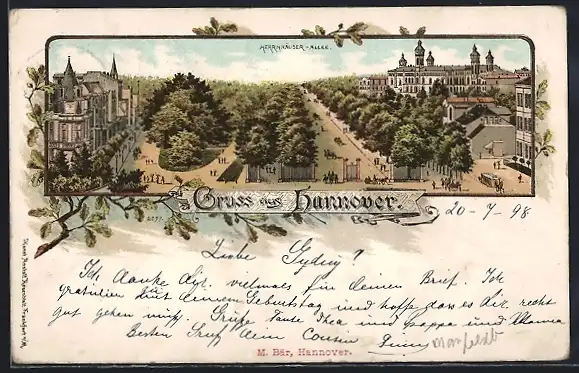 HERRNHÄUSER-ALLEE.
Gruss aus Hannover.
20-7-98
Liebe
Ich danke dir vielmals für deinen Brief. Ich
gratulire dir deinem Geburtstag und hoffe dass es dir recht
gut gehen wird. Grüße Tante Thea und Pappa und Mama
Besten Gruß dein Cousin
M. Bär, Hannover.